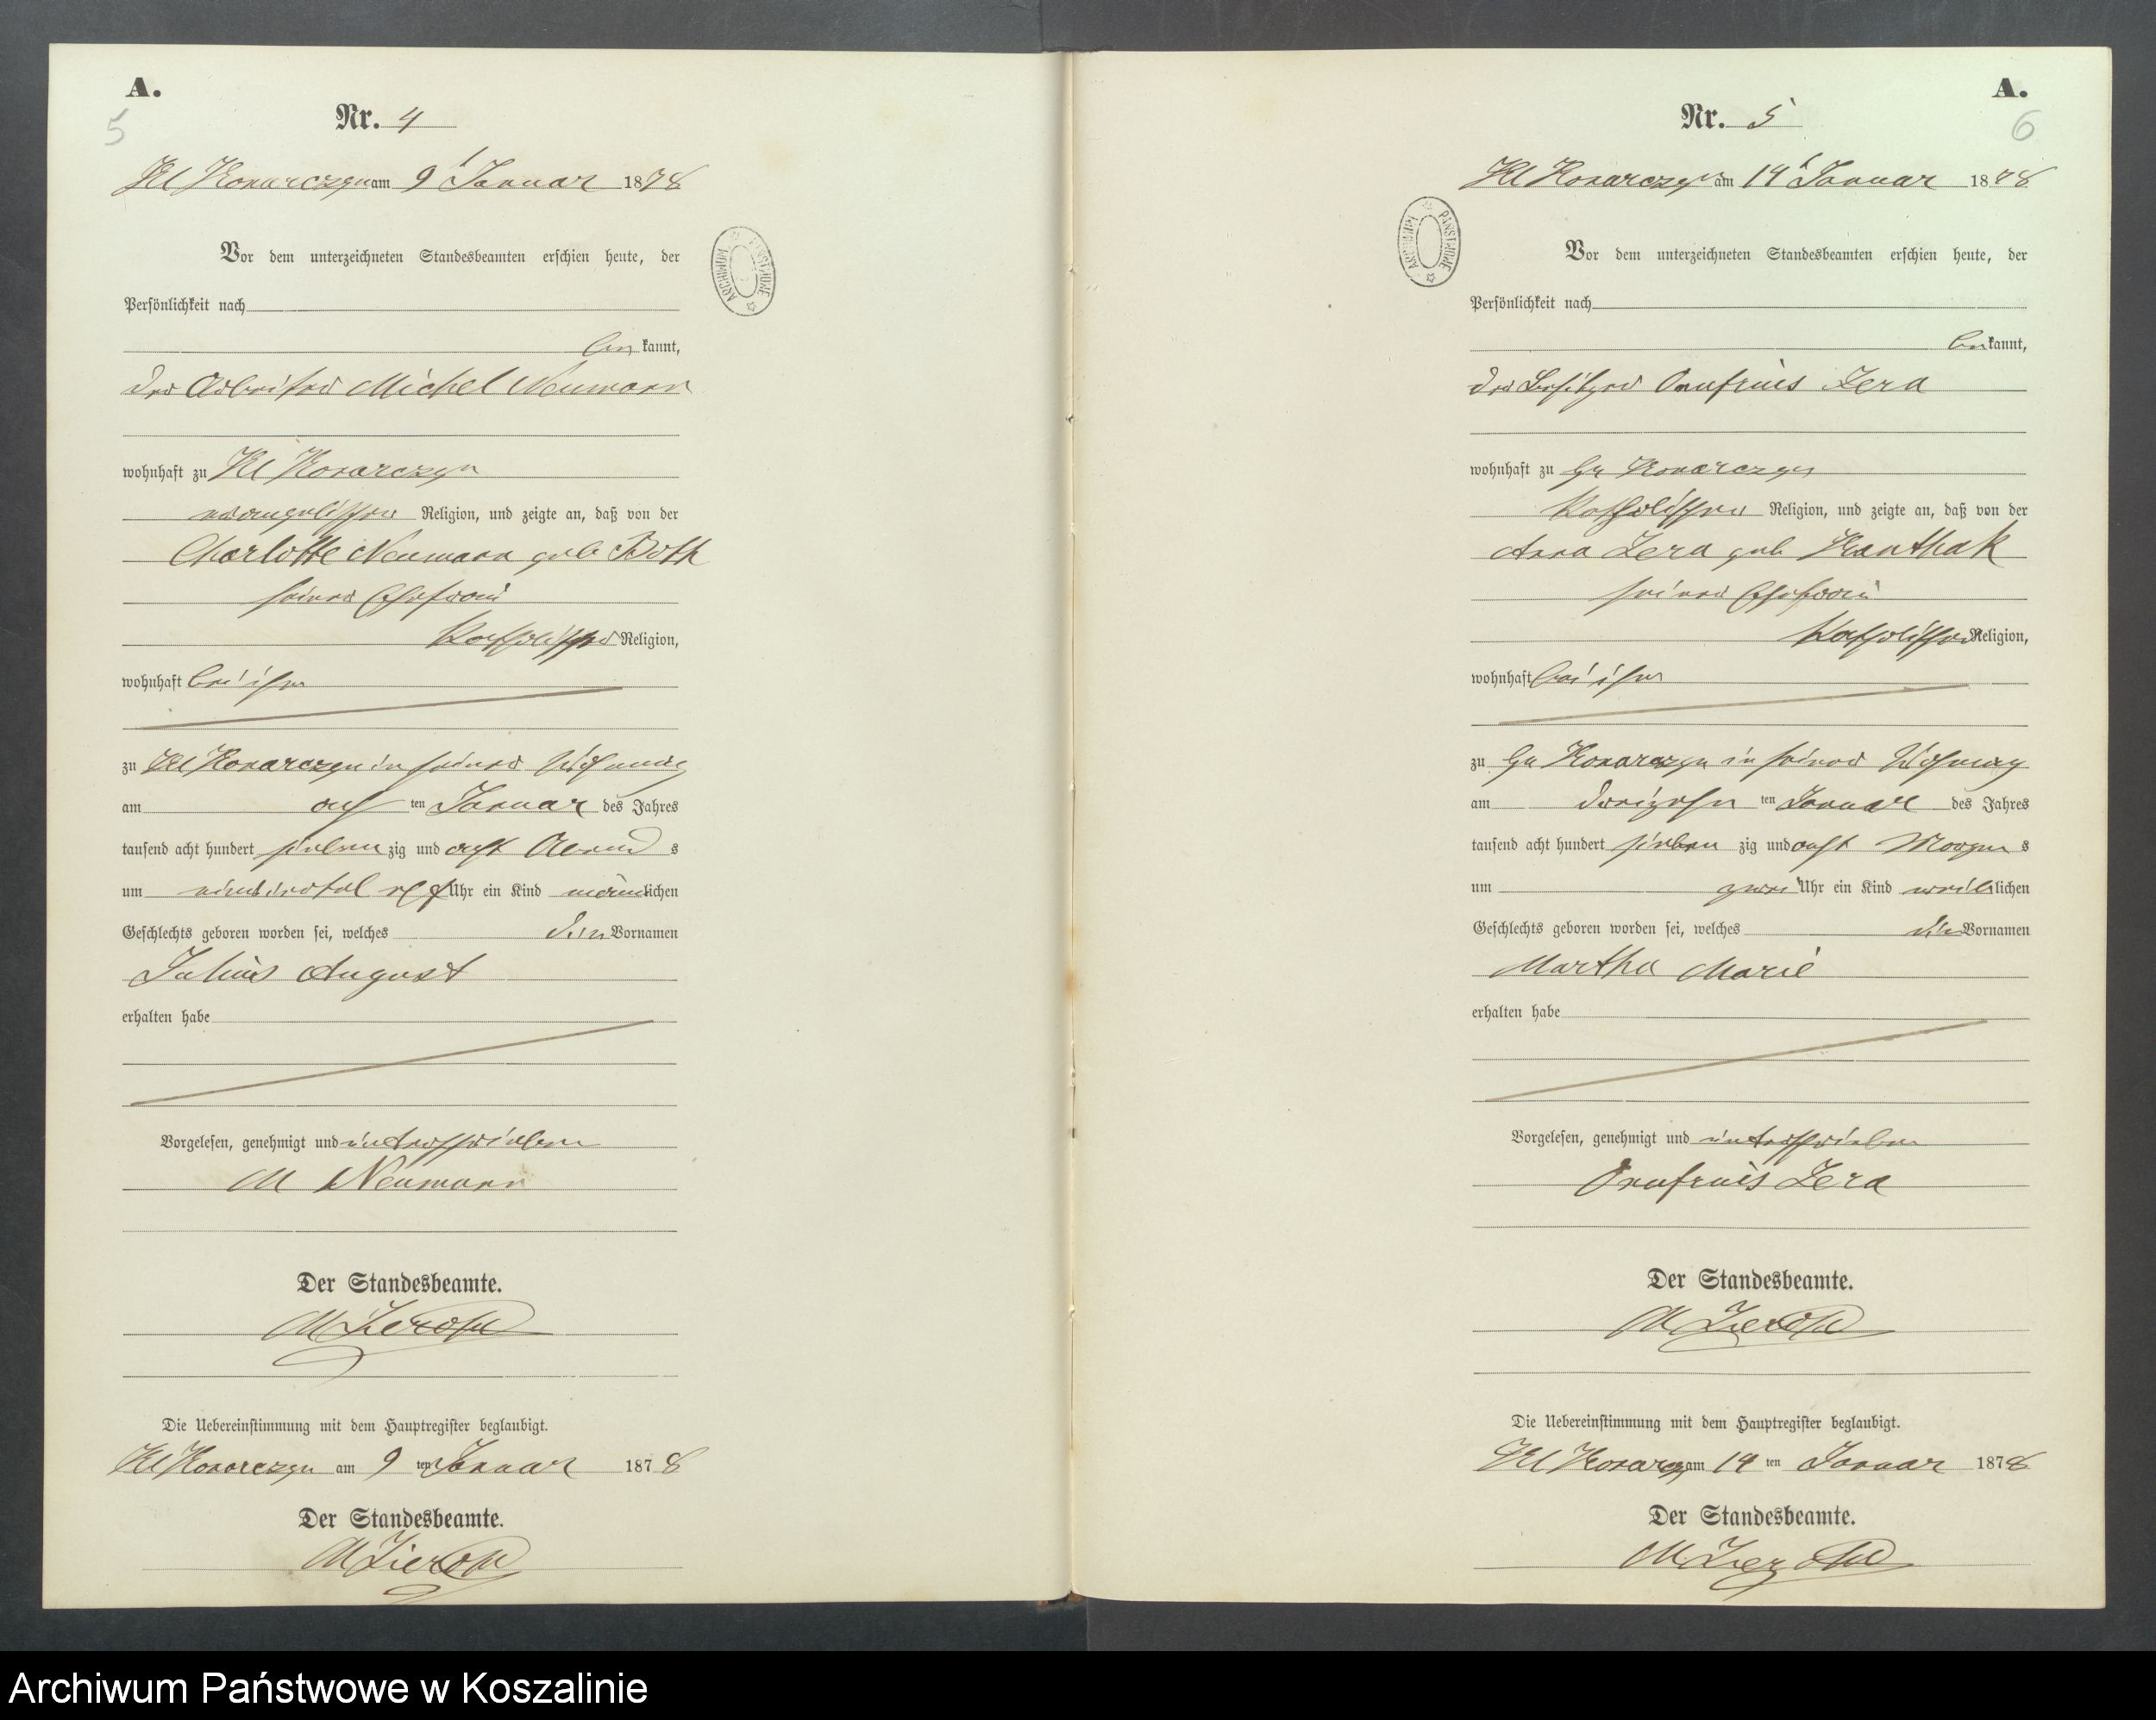 A.
5
Nr. 4
Kl Konarczyn am 9t Januar 1878
Vor dem unterzeichneten Standesbeamten erschien heute, der
Persönlichkeit nach
be kannt,
der Arbeiter Michel Neumann
wohnhaft zu Kl Konarczyn
evangelischer Religion, und zeigte an, daß von der
Charlotte Neumann geb Both
seiner Ehefrau
katholischer Religion,
wohnhaft bei ihm
zu Kl Konarczyn in seiner Wohnung
am acht ten Januar des Jahres
tausend acht hundert sieben zig und acht Abend s
um elf Uhr ein Kind männlichen
Geschlechts geboren worden sei, welches den Vornamen
Julius August
erhalten habe
Vorgelesen, genehmigt und unterschrieben
M Neumann
Der Standesbeamte.
Die Uebereinstimmung mit dem Hauptregister beglaubigt.
Kl Konarczyn am 9 ten Januar 1878
Der Standesbeamte.
A.
6
Nr. 5
Kl Konarczyn am 14t Januar 1878
Vor dem unterzeichneten Standesbeamten erschien heute, der
Persönlichkeit nach
be kannt,
der Besitzer Onufrius Zera
wohnhaft zu Gr Konarczyn
katholischer Religion, und zeigte an, daß von der
Anna Zera geb Kanthak
seiner Ehefrau
katholischer Religion,
wohnhaft bei ihm
zu Gr Konarczyn in seiner Wohnung
am dreizehn ten Januar des Jahres
tausend acht hundert sieben zig und acht Morgen s
um zwei Uhr ein Kind weiblichen
Geschlechts geboren worden sei, welches die Vornamen
Martha Marie
erhalten habe
Vorgelesen, genehmigt und unterschrieben
Onufrius Zera
Der Standesbeamte.
Die Uebereinstimmung mit dem Hauptregister beglaubigt.
Kl Konarczyn am 14 ten Januar 1878
Der Standesbeamte.
ARCHIWUM PAŃSTWOWE
Archiwum Państwowe w Koszalinie